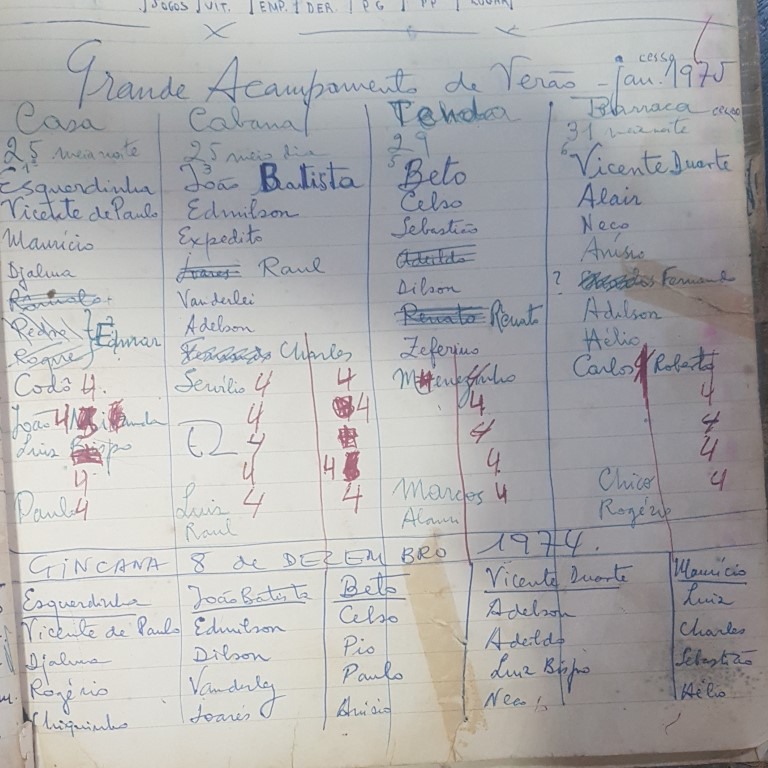 JOGOS | VIT. | EMP. | DER. | PG | PP | LUGAR
Grande Acampamento de Verão - jan. 1975
Casa Cabana Tenda Barraca
25 meia noite 25 meio dia 29 31 meia noite
Esquerdinha João Batista Beto Vicente Duarte
Vicente de Paulo Edmilson Celso Alair
Maurício Expedito Sebastião Neco
Djalma Raul Adeildo Anísio
Vanderlei Dilson ? Fernand
Pedro Edmar Adelson Renato Renato Adilson
Roque Charles Zeferino Hélio
Codó 4. Servílio 4 4 Menezinho Carlos Roberto
João 4 4 4 4 4
Luis Bispo 4 4 4
4 4 4 4 4
Paulo 4 Luis 4 4 Marcos 4 Chico 4
Raul Rogério
GINCANA 8 de DEZEMBRO 1974.
Esquerdinha João Batista Beto Vicente Duarte Maurício
Vicente de Paulo Edmilson Celso Adelson Luiz
Djalma Dilson Pio Adeildo Charles
Rogério Vanderley Paulo Luiz Bispo Sebastião
Chiquinho Soares Anísio Neco Hélio